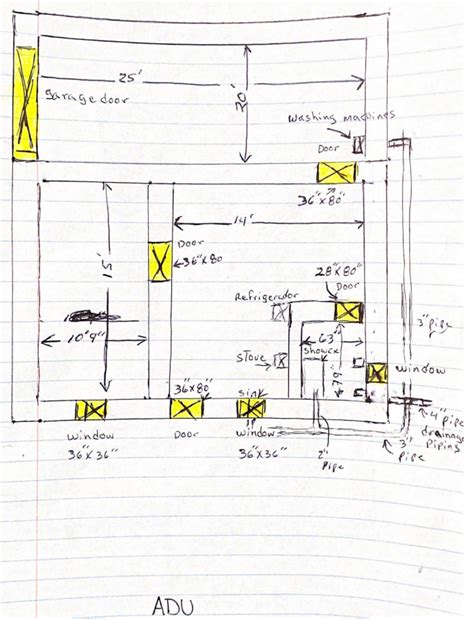 25'
Garage door
20'
Washing machines
Door
36"x80"
14'
15'
Door
36"x80
28"x80"
Door
Refrigerador
3" pipe
10'9"
63"
stove
shower
79"
window
36"x80"
sink
4" pipe
drainage
piping
window
36"x36"
Door
window
36"x36"
2"
pipe
3"
pipe
ADU